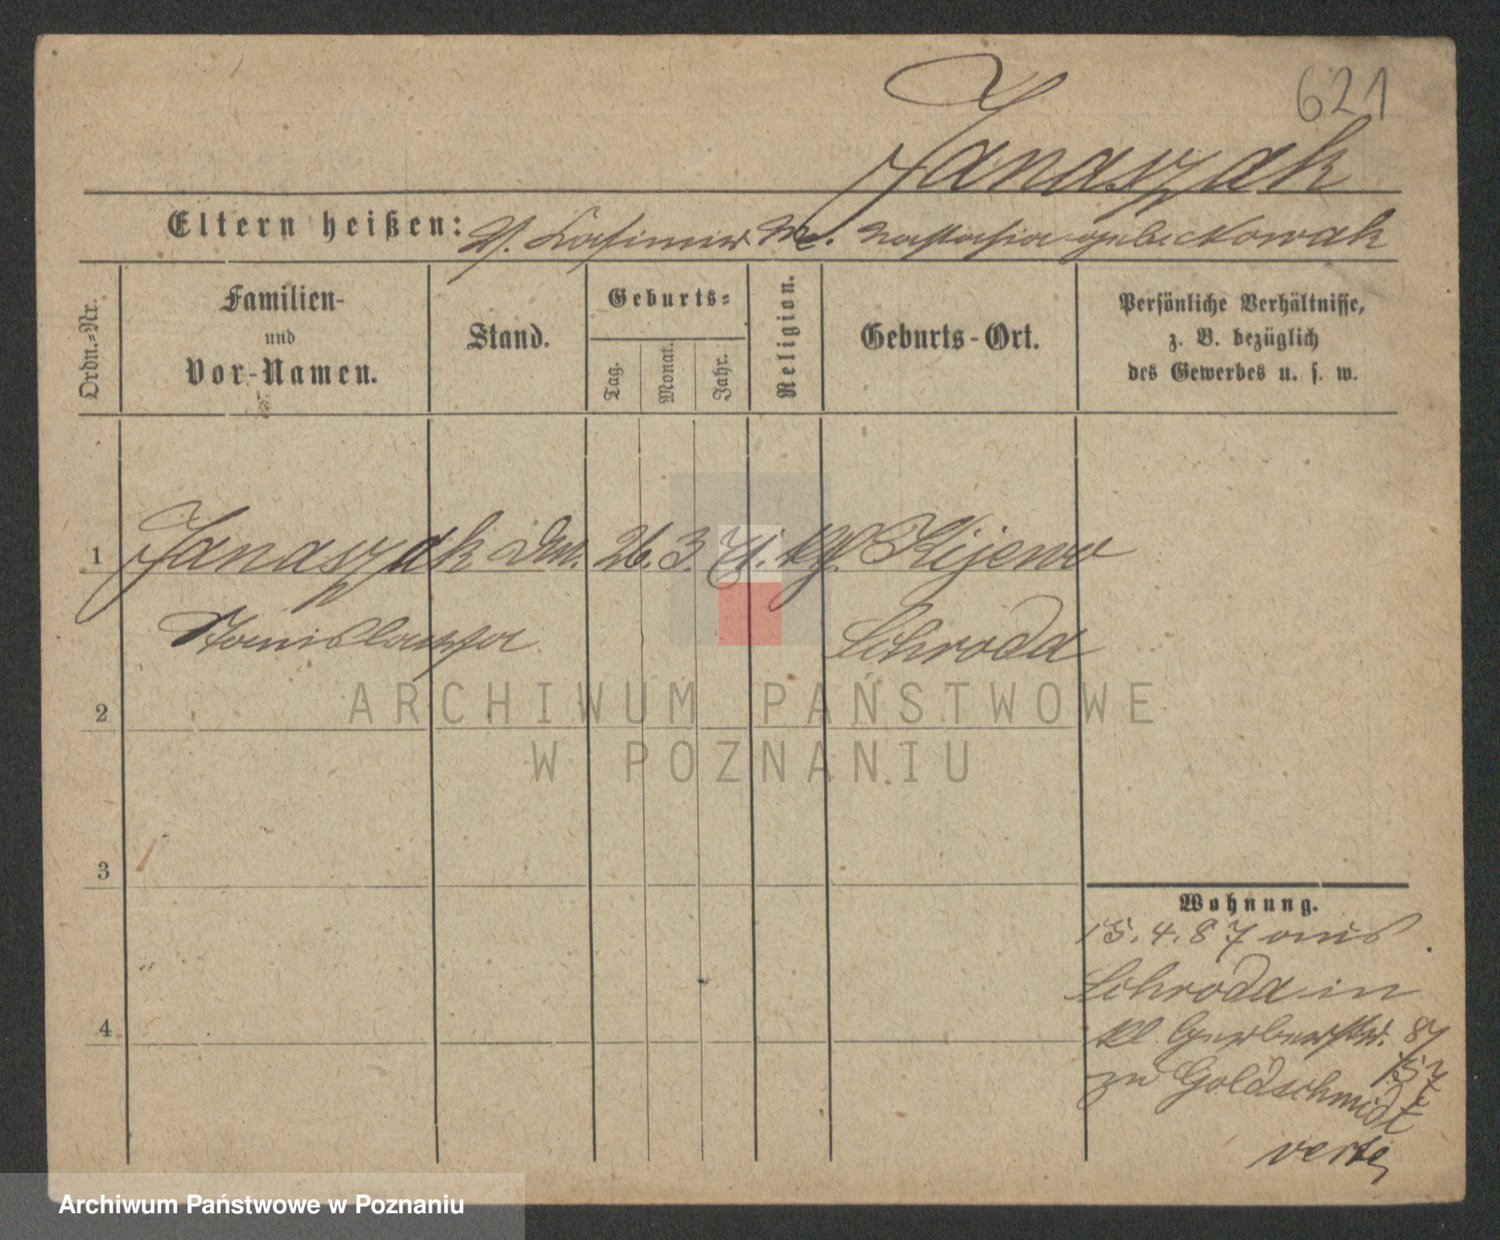 621
Janaszak
Eltern heißen: V. Kasimir M. Nastasia geb. Nowak
Ordn.-Nr.
Familien-
und
Vor-Namen.
Stand.
Geburts-
Tag.
Monat.
Jahr.
Religion.
Geburts-Ort.
Persönliche Verhältnisse,
z. B. bezüglich
des Gewerbes u. s. w.
1 Janaszak 26. 3. 71. Kijewo
Stanislawa Schroda
2
3
4
Wohnung.
15. 4. 87 aus
Schroda in
kl. Gerberstr. 8
zu Goldschmidt
verte
ARCHIWUM PAŃSTWOWE
W POZNANIU
Archiwum Państwowe w Poznaniu